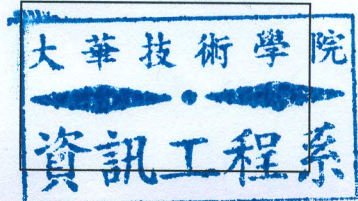 大華技術學院
資訊工程系